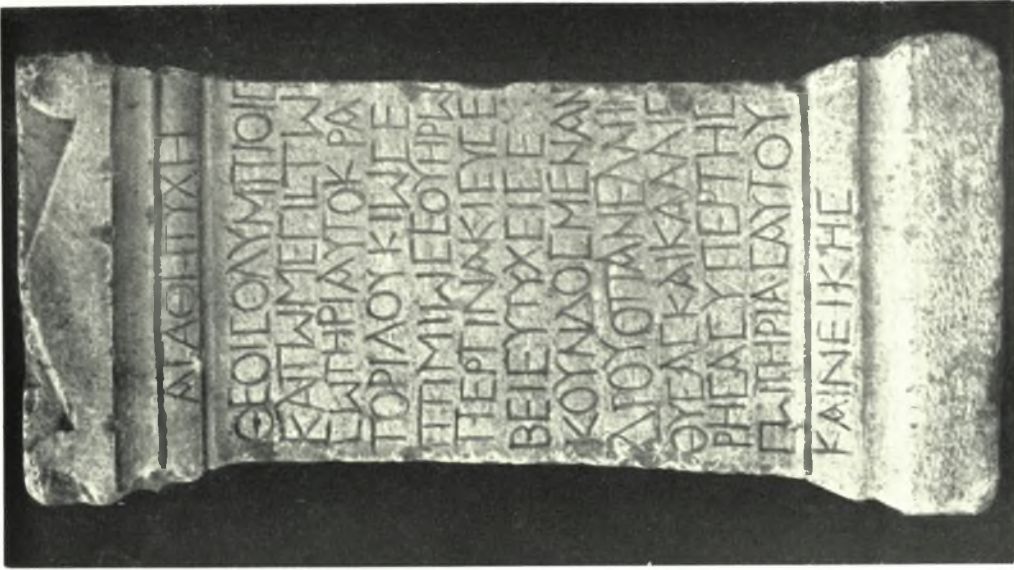 ΑΓΑΘΗΙΤΥΧΗ
ΘΕΟΙϹΟΛΥΜΠΙΟΙϹ
ΚΑΙΤΩΜΕΓΙϹΤΩ
ϹΩΤΗΡΙΑΥΤΟΚΡΑ
ΤΟΡΙΛΟΥΚΙΩϹΕ
ΠΤΙΜΙΩϹΕΟΥΗΡΩ
ΠΕΡΤΙΝΑΚΙΕΥϹΕ
ΒΕΙΕΥΤΥΧΕΙϹΕ
ΚΟΥΝΔΟϹΜΕΝΑΝ
ΔΡΟΥΟΠΑΝΕΛΛΗ
ΘΥϹΑϹΚΑΙΚΑΛΛΙΕ
ΡΗϹΑϹΥΠΕΡΤΗϹ
ϹΩΤΗΡΙΑϹΕΑΥΤΟΥ
ΚΑΙΝΕΙΚΗϹ